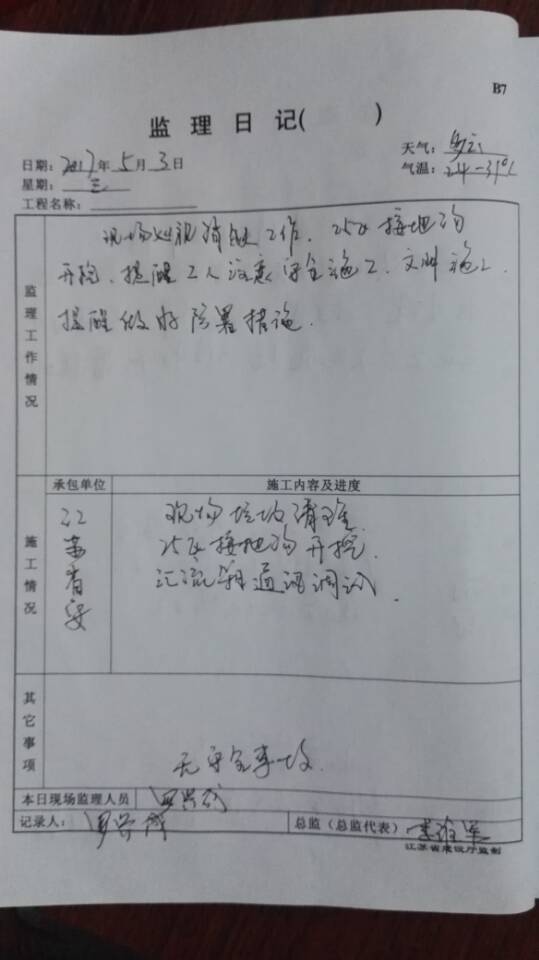 B7
监 理 日 记(      )
日期: 2017年 5月 3日
天气: 多云
星期: 三
气温: 24-31℃
工程名称:
监理工作情况
现场巡视消缺工作. 25# 接地沟
开挖、提醒工人注意安全施工、文明施工.
提醒做好防暑措施.
施工情况
承包单位
施工内容及进度
江苏省安
现场垃圾清理
25# 接地沟开挖.
汇流箱通讯调试.
其它事项
无安全事故.
本日现场监理人员
记录人:
总监（总监代表）
江苏省建设厅监制